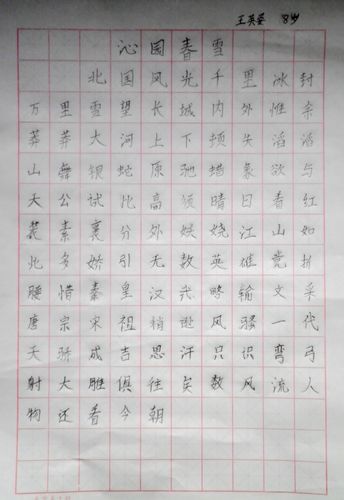 王英姿 8岁
沁园春雪
北国风光千里冰封
万里雪望长城内外惟余
莽莽大河上下顿失滔滔
山舞银蛇原驰蜡象欲与
天公试比高须晴日看红
装素裹分外妖娆江山如
此多娇引无数英雄竞折
腰惜秦皇汉武略输文采
唐宗宋祖稍逊风骚一代
天骄成吉思汗只识弯弓
射大雕俱往矣数风流人
物还看今朝